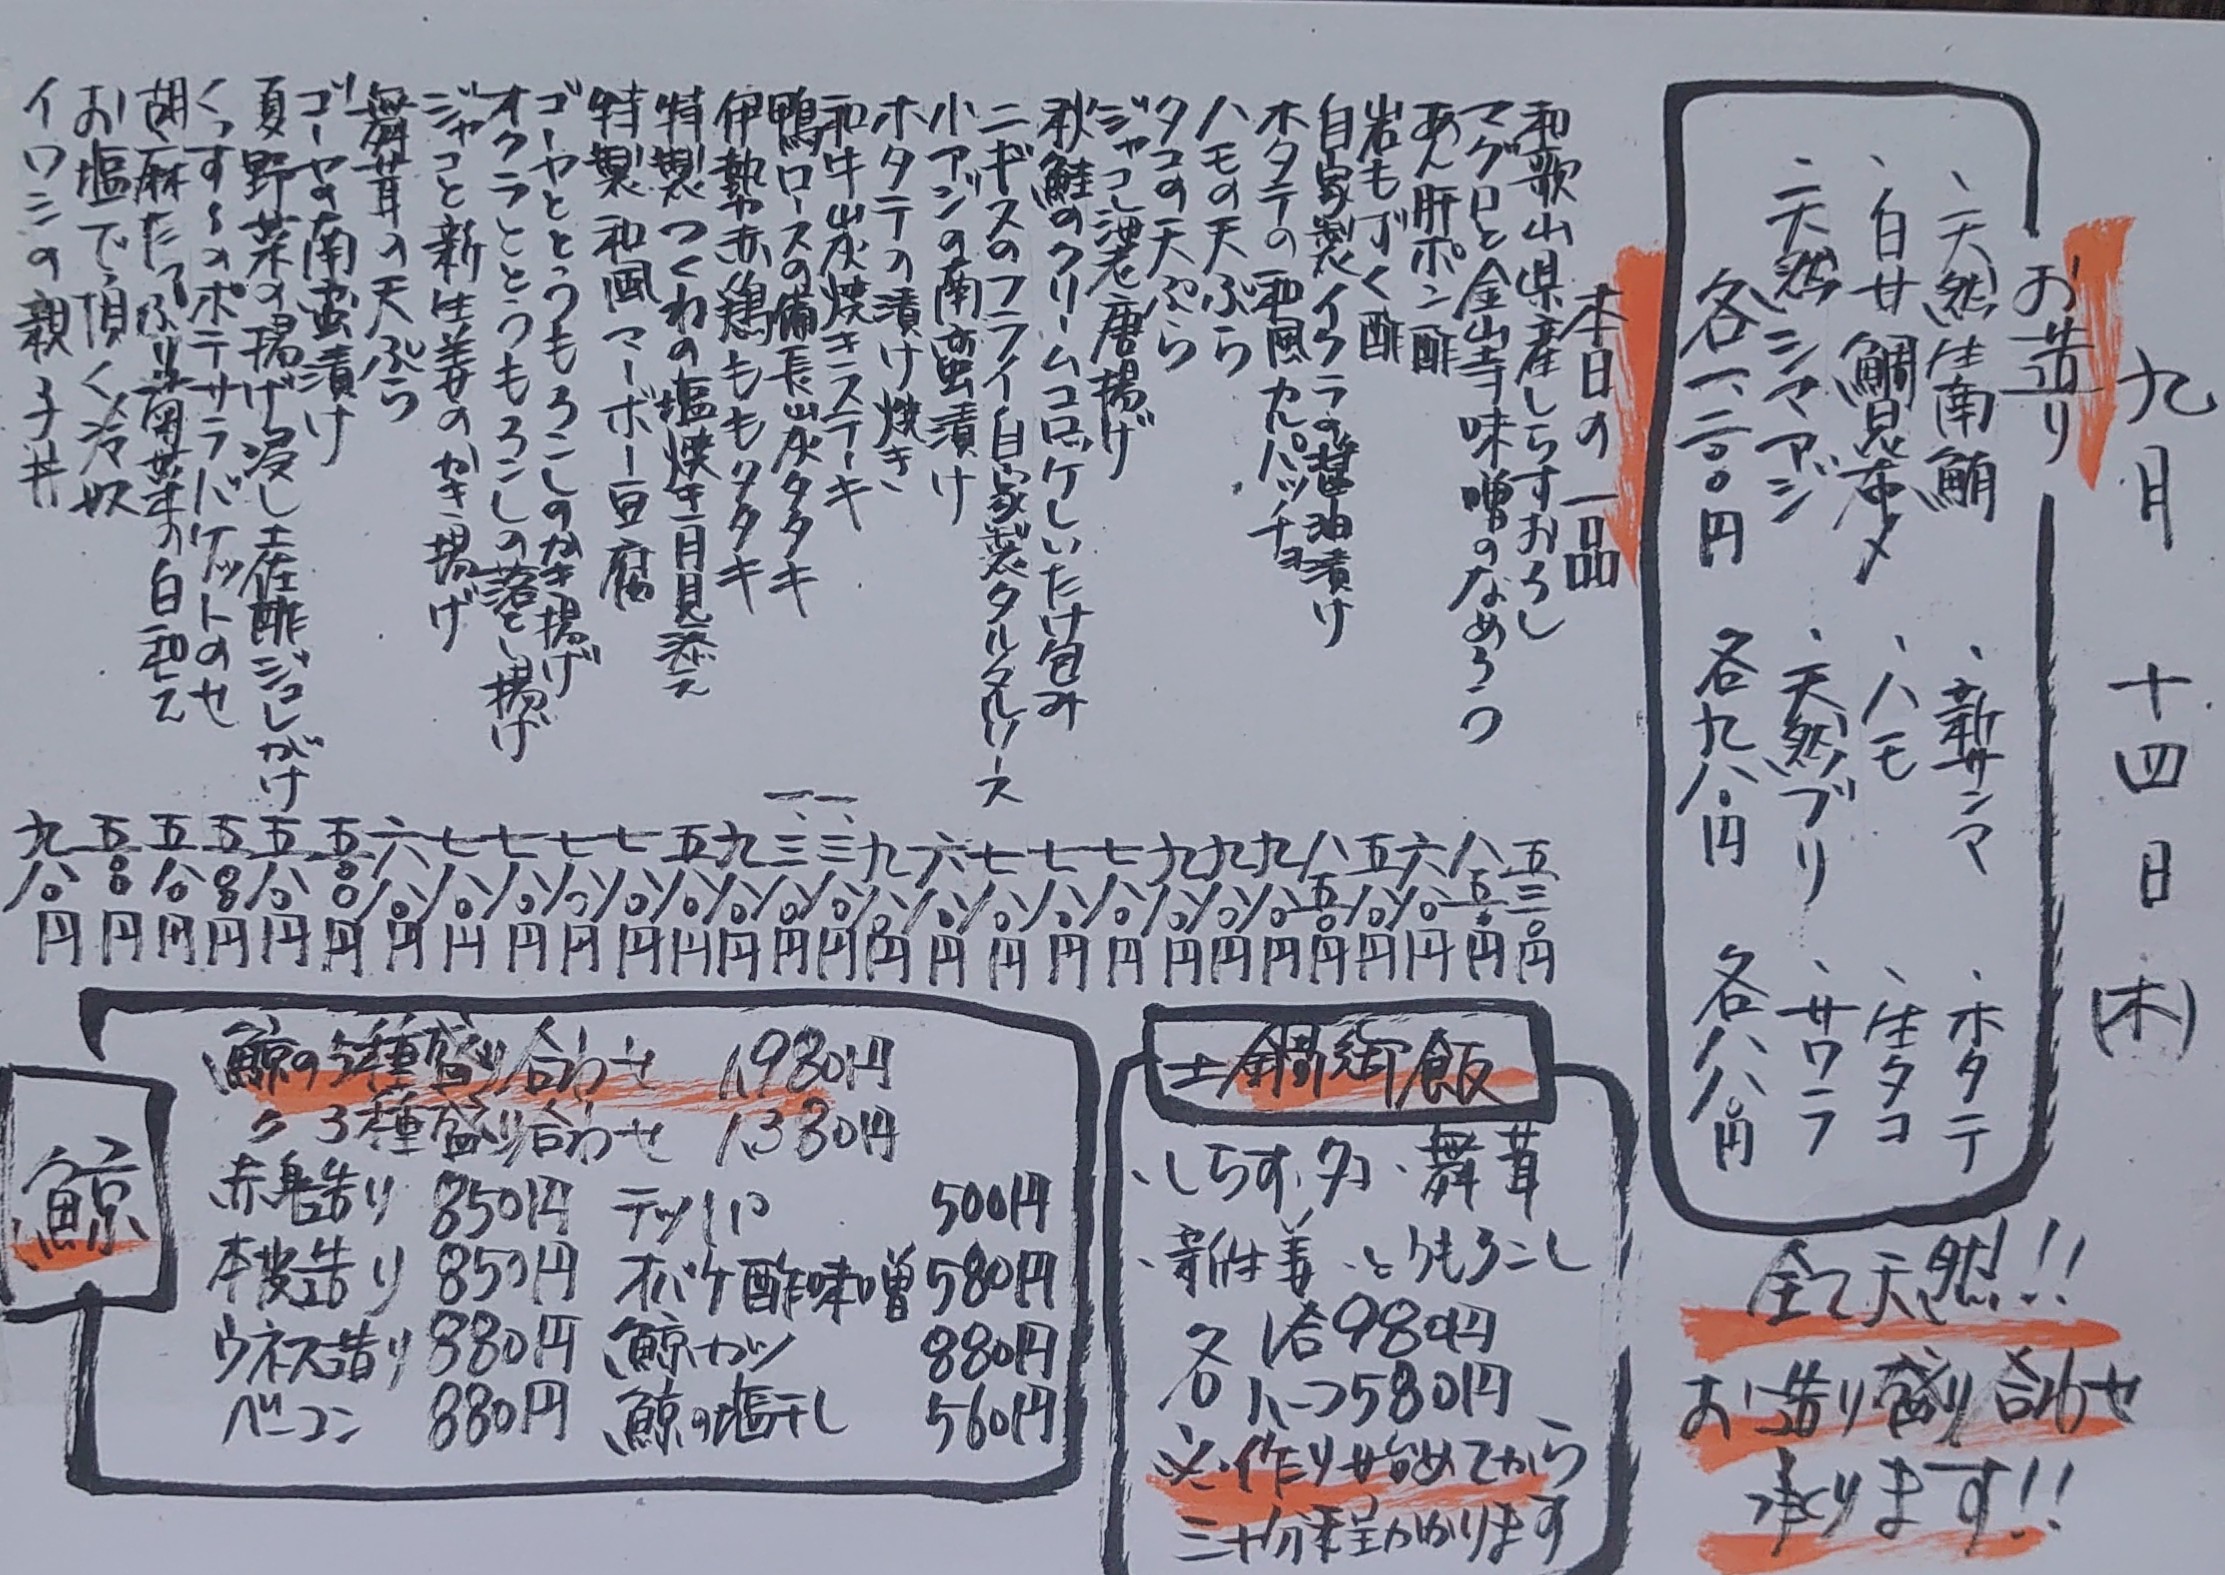 九月 十四日 (木)
お造り
、天然生南鮪
、白甘鯛昆布〆
、天然シマアジ
各一、二〇〇円
、新サンマ
、ハモ
、天然ブリ
各九八〇円
、ホタテ
、生タコ
、サワラ
各八八〇円
全て天然!!
お造り盛り合わせ
承ります!!
本日の一品
和歌山県産しらすおろし 五三〇円
マグロと金山寺味噌のなめろう 八五〇円
あん肝ポン酢 六八〇円
岩もずく酢 五八〇円
自家製イクラの醤油漬け 八五〇円
ホタテの和風カルパッチョ 九八〇円
ハモの天ぷら 九八〇円
タコの天ぷら 九八〇円
ジャコし沼老唐揚げ 七八〇円
秋鮭のクリームコロッケしいたけ包み 七八〇円
ニギスのフライ自家製タルタルソース 七八〇円
小アジの南蛮漬け 六八〇円
ホタテの漬け焼き 九八〇円
和牛炭焼きステーキ 一、三八〇円
鴨ロースの備長炭タタキ 一、三八〇円
伊勢赤鶏もものタタキ 九八〇円
特製つくねの塩焼き月見添え 五八〇円
特製和風マーボー豆腐 七八〇円
ゴーヤととうもろこしのかき揚げ 七八〇円
オクラととうもろこしの落とし揚げ 七八〇円
ジャコと新生姜のかき揚げ 七八〇円
舞茸の天ぷら 六八〇円
ゴーヤの南蛮漬け 五〇〇円
夏野菜の揚げ浸し土佐酢ジュレがけ 五八〇円
くんすぅのポテサラバケットのせ 五〇〇円
胡麻たっぷり菊菜の白和え 五八〇円
お塩で頂く冷奴 五〇〇円
イワシの親子丼 九八〇円
土鍋御飯
、しらす、タコ、舞茸
、新生姜、とうもろこし
各 1合980円
各 ハーフ580円
※作り始めてから
三十分程かかります
鯨
鯨の5種盛り合わせ 1,980円
〃 3種盛り合わせ 1,380円
赤身造り 850円
本皮造り 850円
ウネス造り 880円
ベーコン 880円
テッパ 500円
オバケ酢味噌 580円
鯨カツ 880円
鯨の塩干し 560円